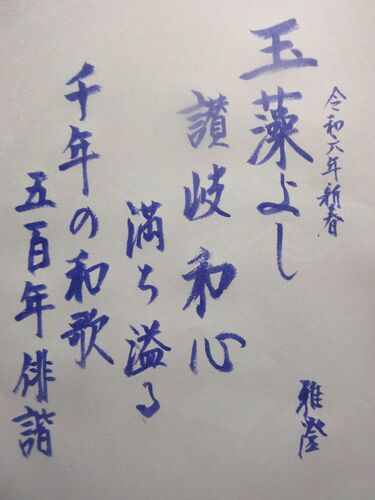 令和六年新春
玉藻よし
讃岐和心
満ち溢る
千年の和歌
五百年俳諧
雅澄